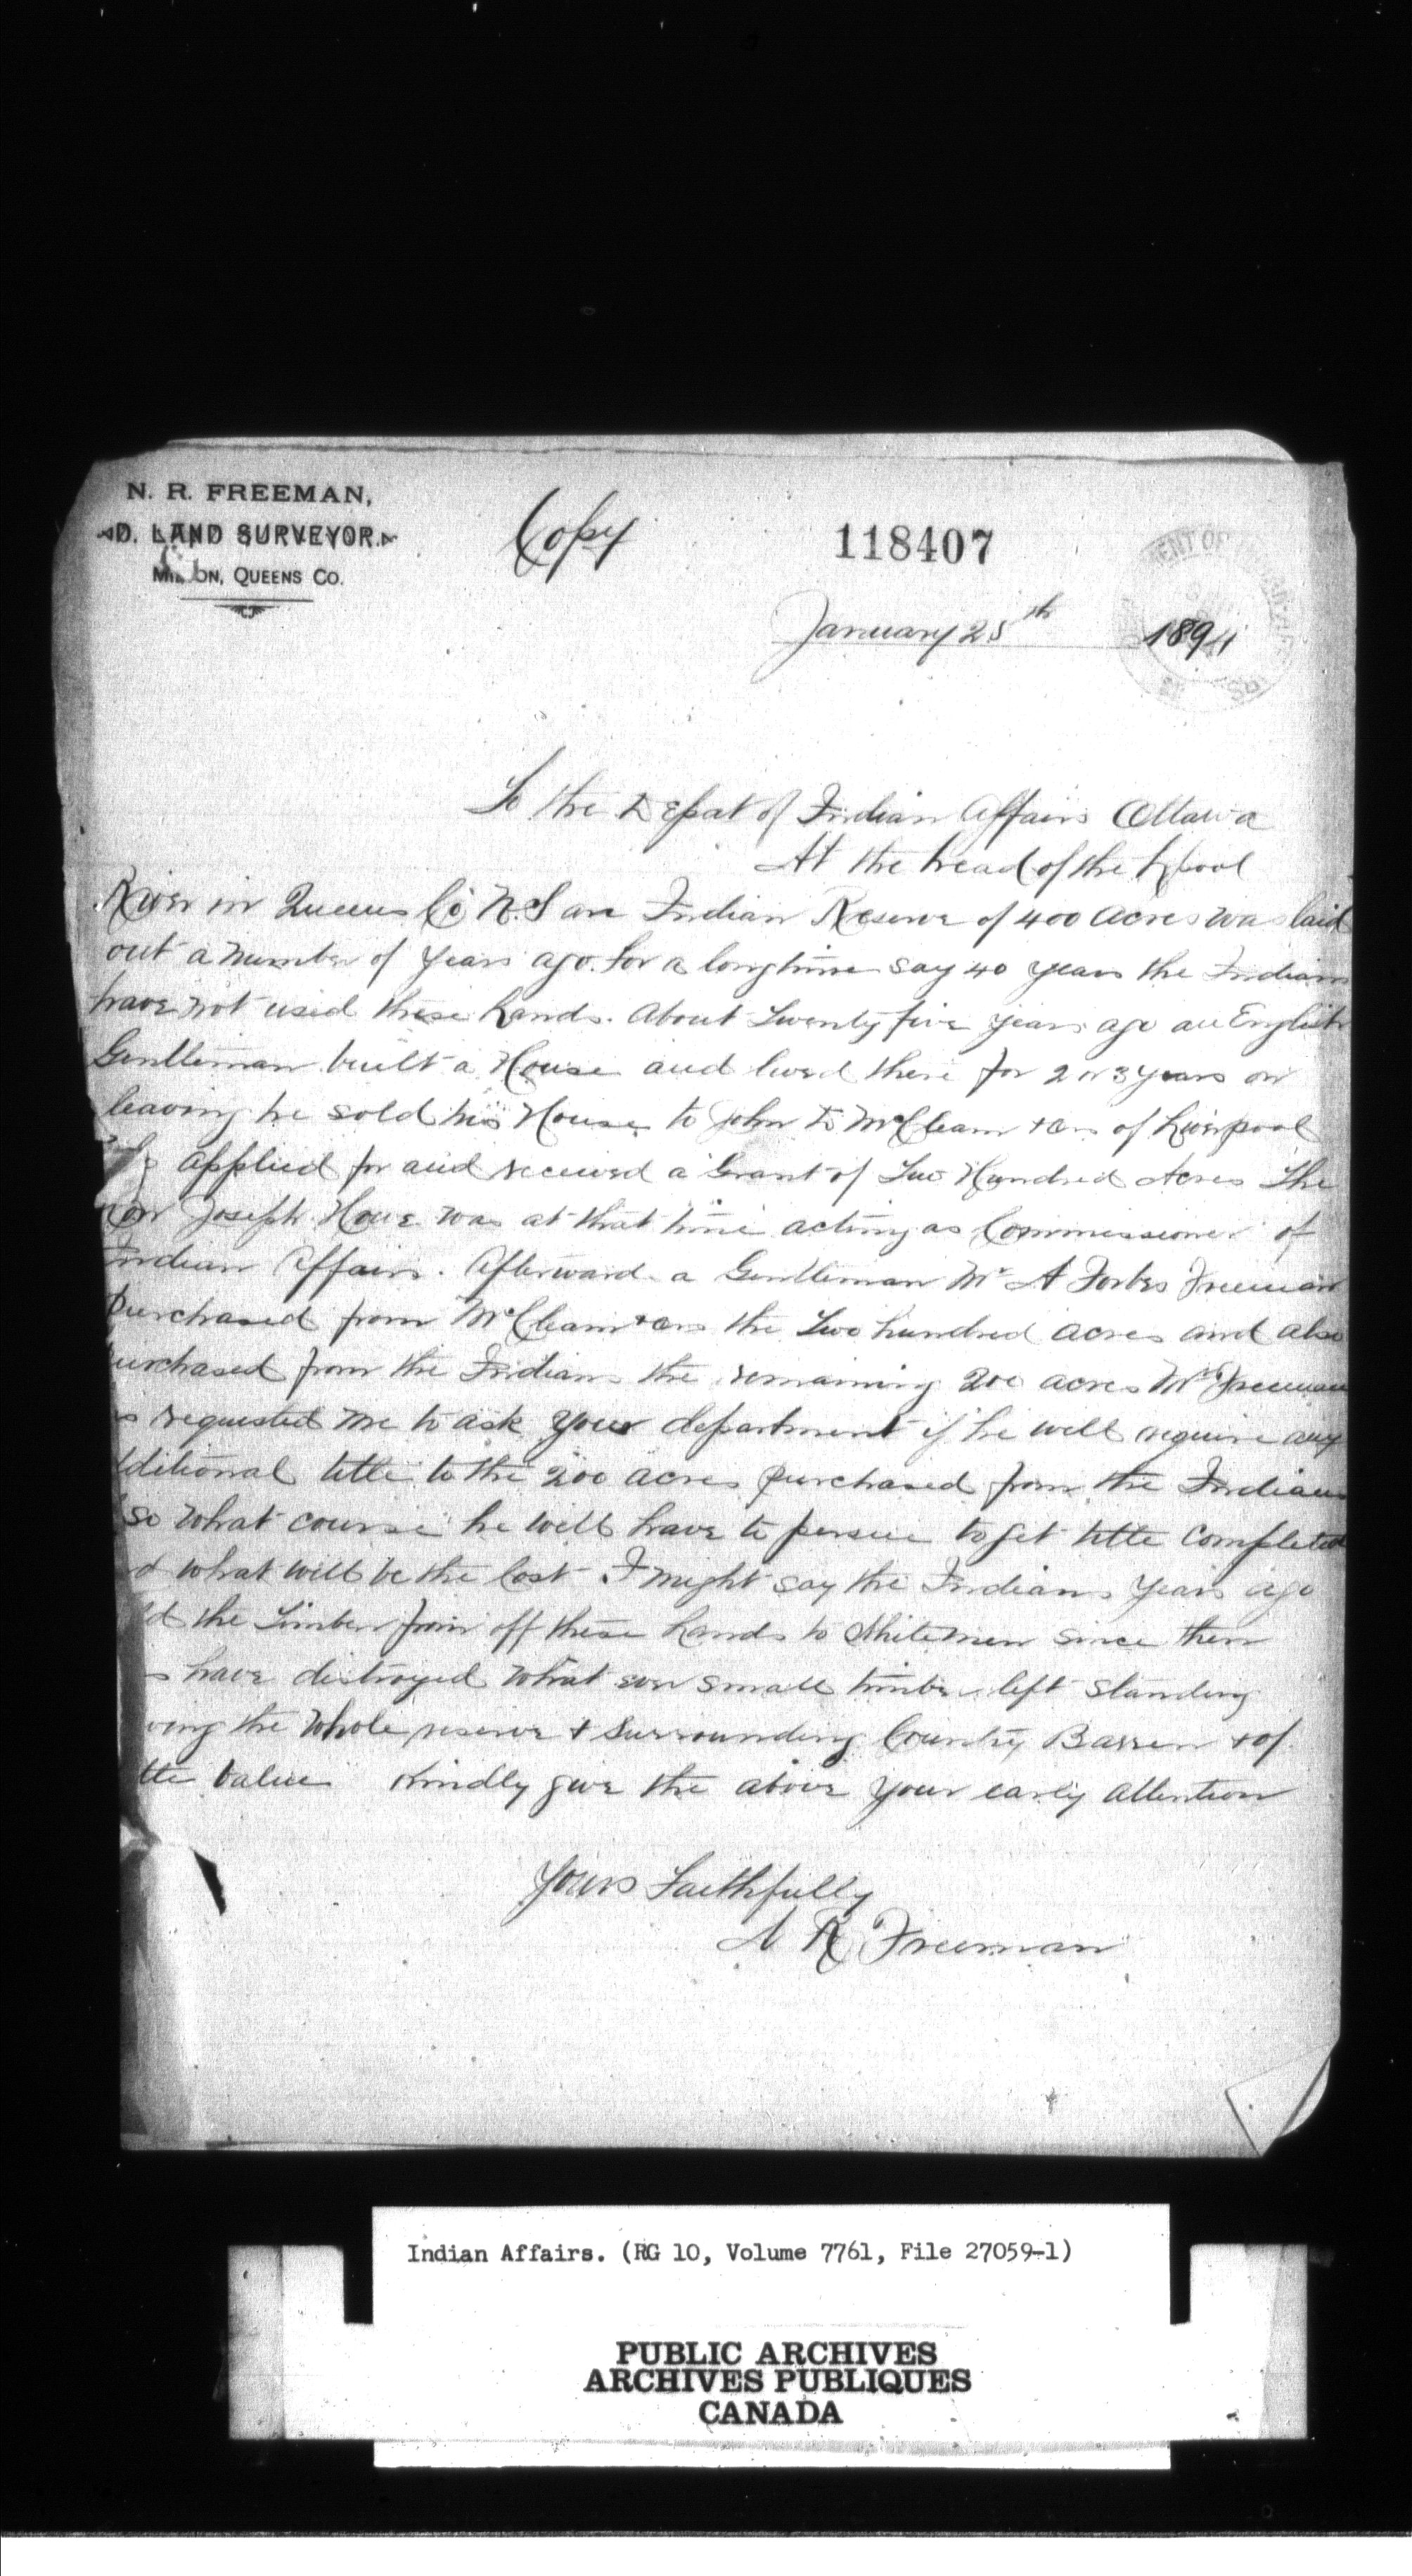 N. R. FREEMAN,
D. LAND SURVEYOR.
MILTON, QUEENS CO.
Copy
118407
January 25th 1894
To the Depat of Indian Affairs Ottawa
At the head of the Lpool
River in Queens Co N.S an Indian Reserve of 400 acres was laid
out a number of years ago. For a long time say 40 years the Indians
have not used these Lands. About Twenty five years ago an English
Gentleman built a House and lived there for 2 or 3 years on
leaving he sold his House to John of Liverpool
applied for and received a Grant of Two Hundred Acres The
Hon Joseph Howe was at that time acting as Commissioner of
Indian Affairs. Afterward a Gentleman Mr A Forbes Freeman
Purchased from the Two hundred acres and also
purchased from the Indians the remaining 200 acres Mr Freeman
s requested me to ask your department if he will require any
dditional title to the 200 acres purchased from the Indians
so what course he will have to persue to get title completed
d what will be the Cost I might say the Indians years ago
ld the Timber from off these Lands to Whitemen since then
s have distroyed what small timber left standing
ving the whole reserve & surrounding Country Barren & of
ttle value Kindly give the above your early attention
Yours Faithfully
N R Freeman
Indian Affairs. (RG 10, Volume 7761, File 27059-1)
PUBLIC ARCHIVES
ARCHIVES PUBLIQUES
CANADA